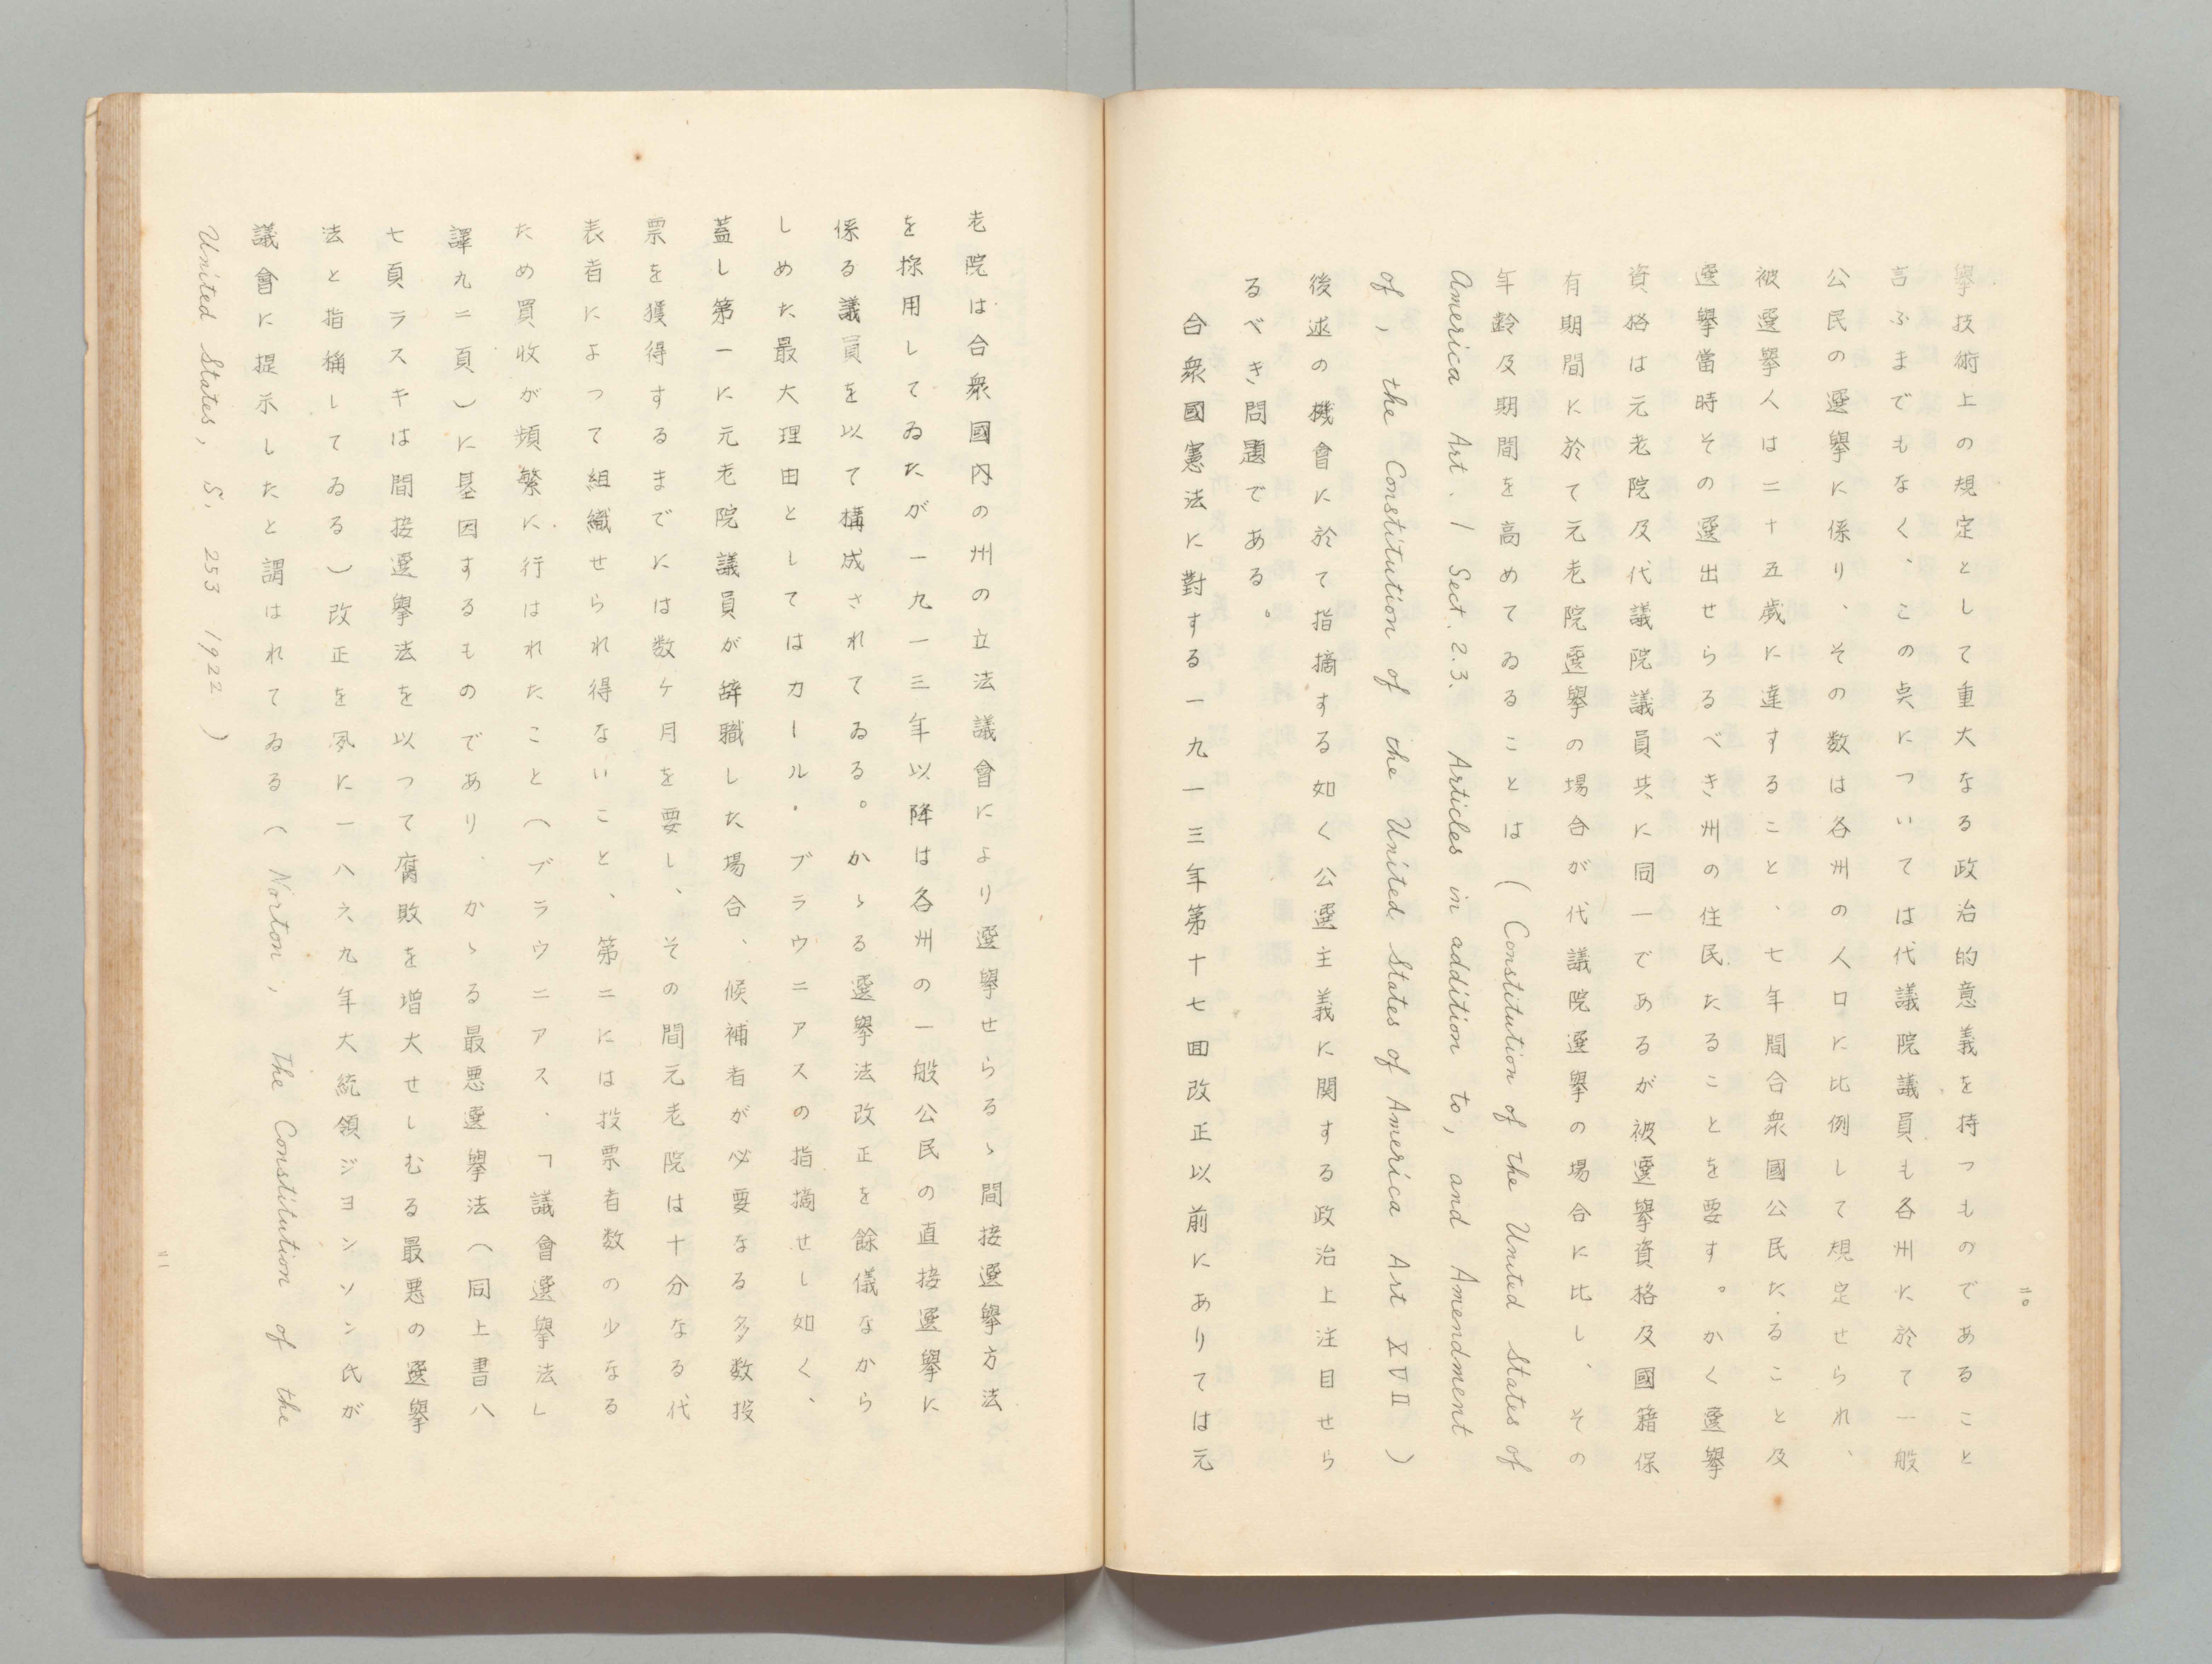 二〇
擧技術上の規定として重大なる政治的意義を持つものであること
言ふまでもなく、この点については代議院議員も各州に於て一般
公民の選擧に係り、その数は各州の人口に比例して規定せられ、
被選擧人は二十五歳に達すること、七年間合衆國公民たること及
選擧當時その選出せらるべき州の住民たることを要す。かく選擧
資格は元老院及代議院議員共に同一であるが被選擧資格及國籍保
有期間に於て元老院選擧の場合が代議院選擧の場合に比し、その
年齡及期間を高めてゐることは(Constitution of the United States of
America Art. 1 Sect. 2.3. Articles in addition to, and Amendment
of, the Constitution of the United States of America Art XVII)
後述の機會に於て指摘する如く公選主義に関する政治上注目せら
るべき問題である。
合衆國憲法に對する一九一三年第十七回改正以前にありては元
老院は合衆國内の州の立法議會により選擧せらるゝ間接選擧方法
を採用してゐたが一九一三年以降は各州の一般公民の直接選擧に
係る議員を以て構成されてゐる。かゝる選擧法改正を餘儀なから
しめた最大理由としてはカール・ブラウニアスの指摘せし如く、
蓋し第一に元老院議員が辞職した場合、候補者が必要なる多数投
票を獲得するまでには数ケ月を要し、その間元老院は十分なる代
表者によつて組織せられ得ないこと、第二には投票者数の少なる
ため買收が頻繁に行はれたこと(ブラウニアス、「議會選擧法」
譯九二頁)に基因するものであり、かゝる最悪選擧法(同上書八
七頁ラスキは間接選擧法を以つて腐敗を増大せしむる最悪の選擧
法と指稱してゐる)改正を夙に一八六九年大統領ジヨンソン氏が
議會に提示したと謂はれてゐる(Norton, The Constitution of the
United States, S. 253 1922)
二一